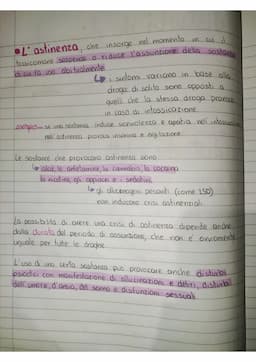 • L'astinenza, che insorge nel momento in cui il
tossicomane sospende o riduce l'assunzione della sostanza
di cui fa uso abitualmente
↳ i sintomi variano in base alla
droga di solito sono opposti a
quelli che la stessa droga provoca
in caso di intossicazione
esempio→ se una sostanza induce sonnolenza e apatia nell'intossicazione
nell'astinenza provoca insonnia e agitazione
Le sostanze che provocano astinenza sono
↳ alcol, le anfetamine, la cannabis, la cocaina
la nicotina, gli oppiacei e i sedativi
↳ gli allucinogeni pesanti (come LSD)
non inducono crisi astinenziali
La possibilità di avere una crisi di astinenza dipende anche
dalla durata del periodo di assunzione, che non è ovviamente
uguale per tutte le droghe
L'uso di una certa sostanza può provocare anche disturbi
psicotici con manifestazione di allucinazioni e deliri, disturbi
dell'umore, d'ansia, del sonno e disfunzioni sessuali